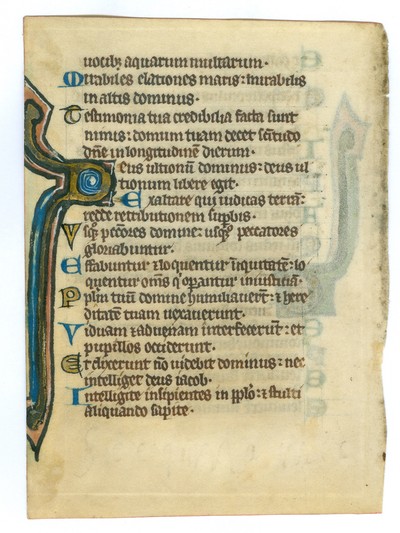 uocib; aquarum multarum·
Mirabiles elationes maris: mirabilis
in altis dominus·
Testimonia tua credibilia facta sunt
nimis: domum tuam decet sc̄itudo
dn̄e in longitudinē dierum·
Deus ultionū dominus: deus ul
tionum libere egit·
Exaltare qui iudicas terrā:
redde retributionem suꝑbis·
Vsq; pctōres domine: usq; peccatores
gloriabuntur·
Effabuntur ⁊ loquentur iniquitatē: lo
quentur om̄s q̇ oꝑantur iniusticiā·
Pplm̄ tuū domine humiliauerūt: ⁊ here
ditatē tuam uexauerunt·
Viduam ⁊ aduenam interfecerūt: et
pupillos occiderunt·
Et dixerunt nō uidebit dominus: nec
intelliget deus iacob·
Intelligite insipientes in pplo: ⁊ stulti
aliquando sapite·